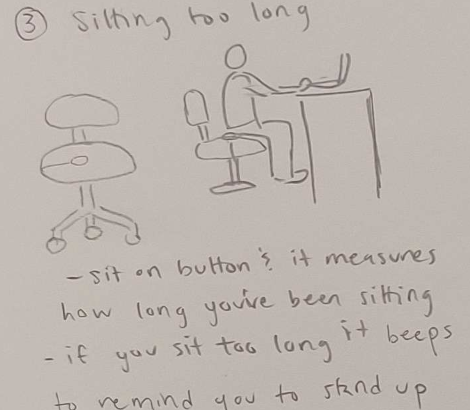 ③ Sitting too long
- sit on button & it measures
how long you've been sitting
- if you sit too long it beeps
to remind you to stand up